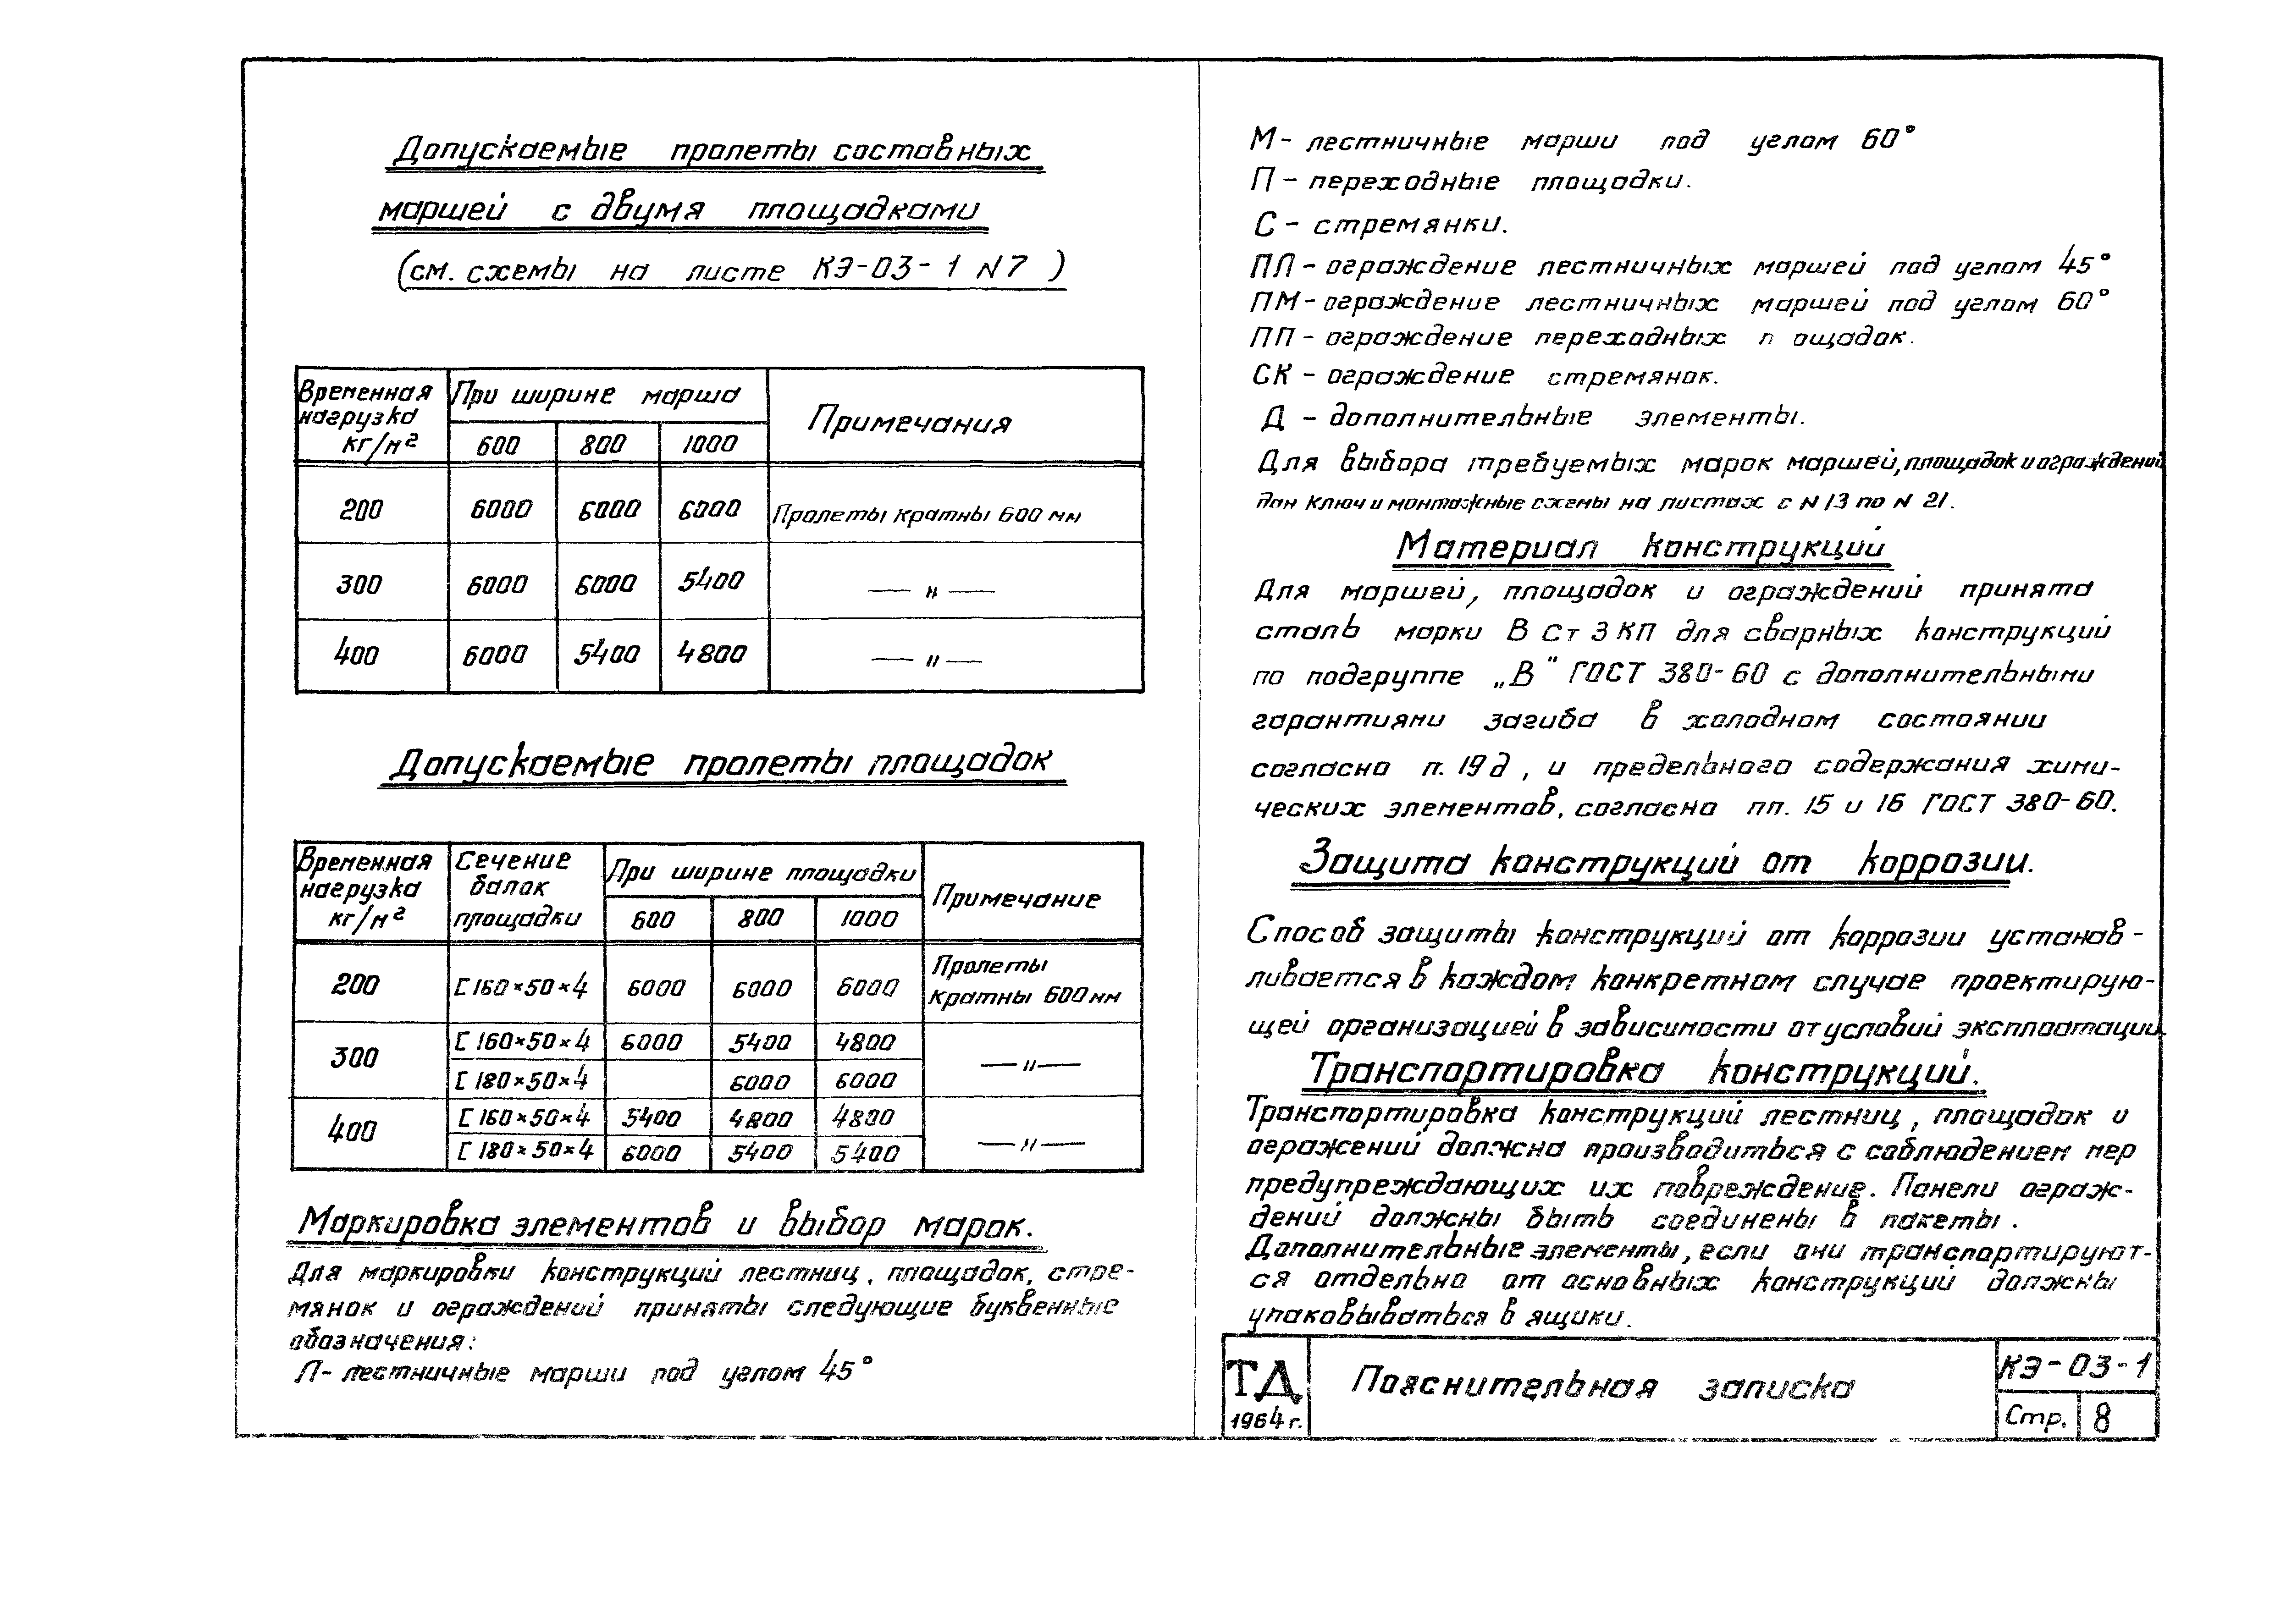 Допускаемые пролеты составных
маршей с двумя площадками
(см. схемы на листе КЭ-03-1 N7)
Временная нагрузка кг/м² | При ширине марша | Примечания
600 | 800 | 1000
200 | 6000 | 6000 | 6000 | Пролеты кратны 600 мм
300 | 6000 | 6000 | 5400 | — " —
400 | 6000 | 5400 | 4800 | — " —
Допускаемые пролеты площадок
Временная нагрузка кг/м² | Сечение балок площадки | При ширине площадки | Примечание
600 | 800 | 1000
200 | [ 160×50×4 | 6000 | 6000 | 6000 | Пролеты кратны 600 мм
300 | [ 160×50×4 | 6000 | 5400 | 4800 | — " —
[ 180×50×4 | 6000 | 6000
400 | [ 160×50×4 | 5400 | 4800 | 4800 | — " —
[ 180×50×4 | 6000 | 5400 | 5400
Маркировка элементов и выбор марок.
Для маркировки конструкций лестниц, площадок, стре-
мянок и ограждений приняты следующие буквенные
обозначения:
Л- лестничные марши под углом 45°
М- лестничные марши под углом 60°
П- переходные площадки.
С- стремянки.
ПЛ- ограждение лестничных маршей под углом 45°
ПМ- ограждение лестничных маршей под углом 60°
ПП- ограждение переходных п ощадок.
СК- ограждение стремянок.
Д - дополнительные элементы.
Для выбора требуемых марок маршей, площадок и ограждений
дан ключ и монтажные схемы на листах с N 13 по N 21.
Материал конструкций
Для маршей, площадок и ограждений принята
сталь марки В Ст 3 КП для сварных конструкций
по подгруппе „В" ГОСТ 380-60 с дополнительными
гарантиями загиба в холодном состоянии
согласно п. 19д, и предельного содержания хими-
ческих элементов, согласно пп. 15 и 16 ГОСТ 380-60.
Защита конструкций от коррозии.
Способ защиты конструкций от коррозии устанав-
ливается в каждом конкретном случае проектирую-
щей организацией в зависимости от условий эксплоатации.
Транспортировка конструкций.
Транспортировка конструкций лестниц, площадок и
огражений должна производиться с соблюдением мер
предупреждающих их повреждение. Панели ограж-
дений должны быть соединены в пакеты.
Дополнительные элементы, если они транспортируют-
ся отдельно от основных конструкций должны
упаковываться в ящики.
ТД
1964 г.
Пояснительная записка
КЭ-03-1
Стр. 8